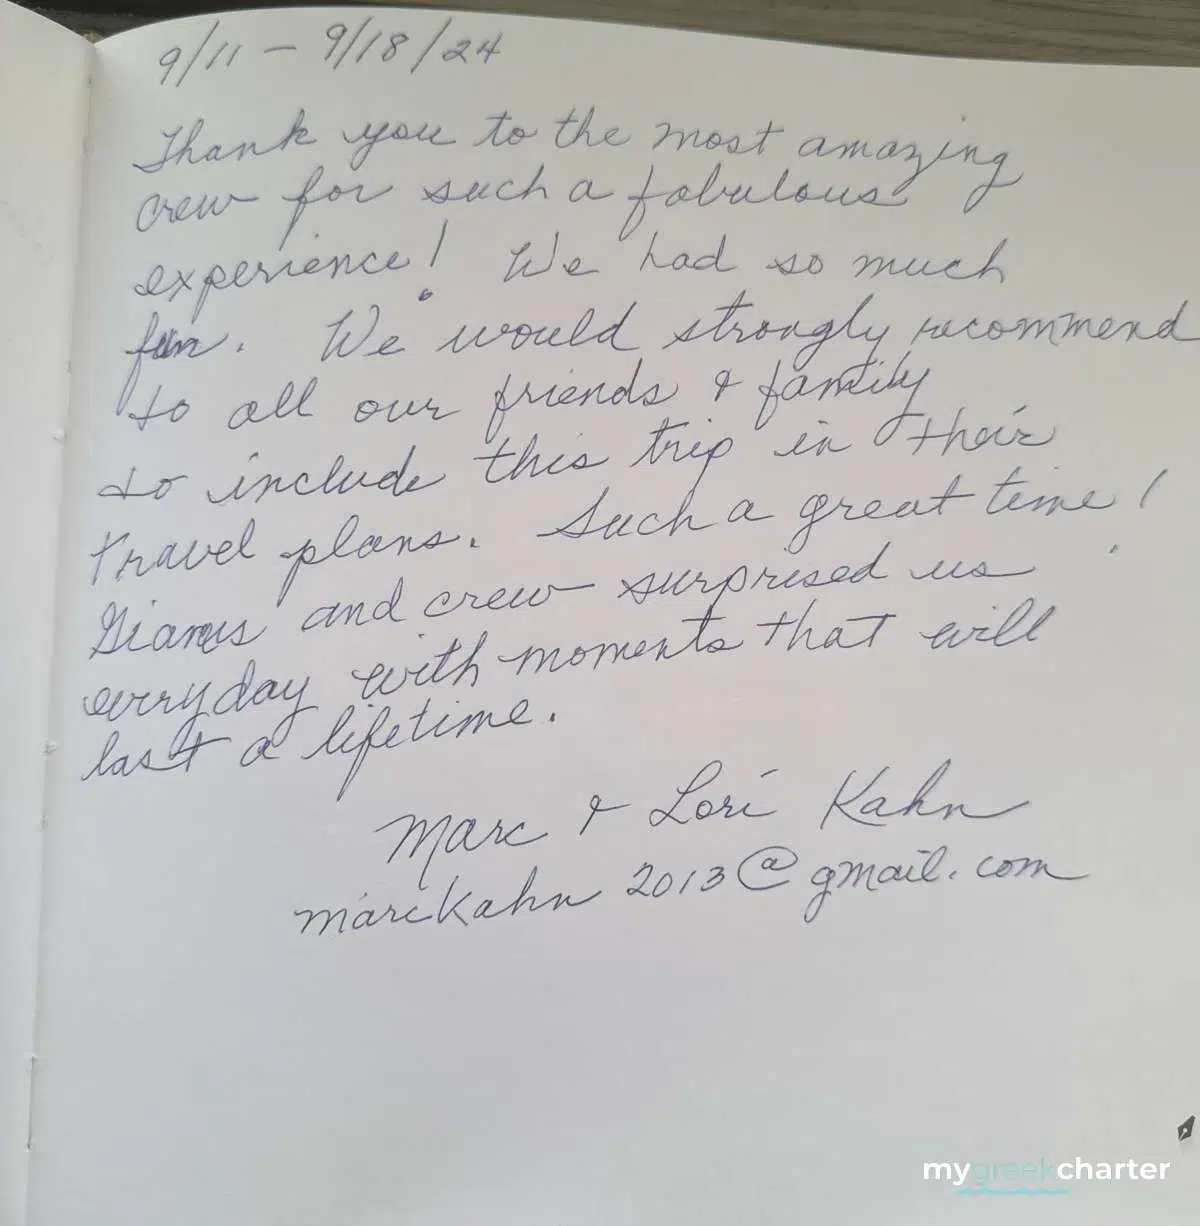 9/11 - 9/18/24
Thank you to the most amazing
crew for such a fabulous
experience! We had so much
fun. We would strongly recommend
to all our friends & family
to include this trip in their
travel plans. Such a great time!
and crew surprised us
everyday with moments that will
last a lifetime.
Marc & Lori Kahn
marckahn2013@gmail.com
mygreekcharter